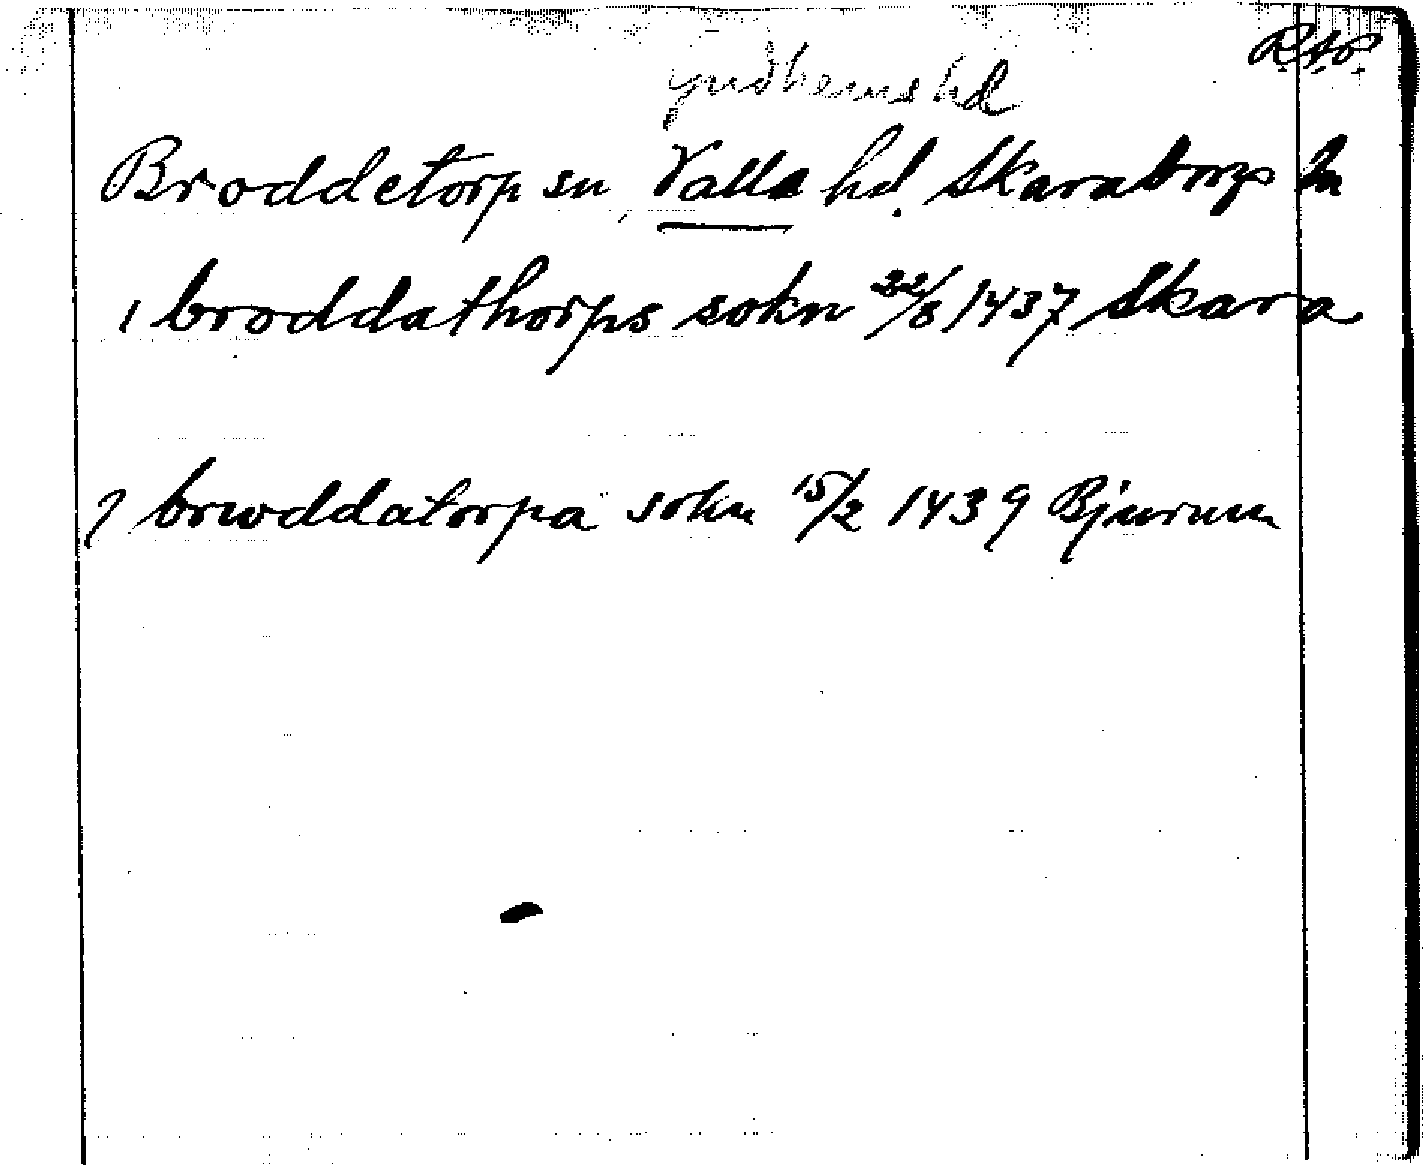 R.A.P.
gudhems hd
Broddetorp sn, Valle hd. Skaraborgs ln
i broddathorps sokn 22/8 1437 Skara
J browddatorpa sokn 15/2 1439 Bjurum